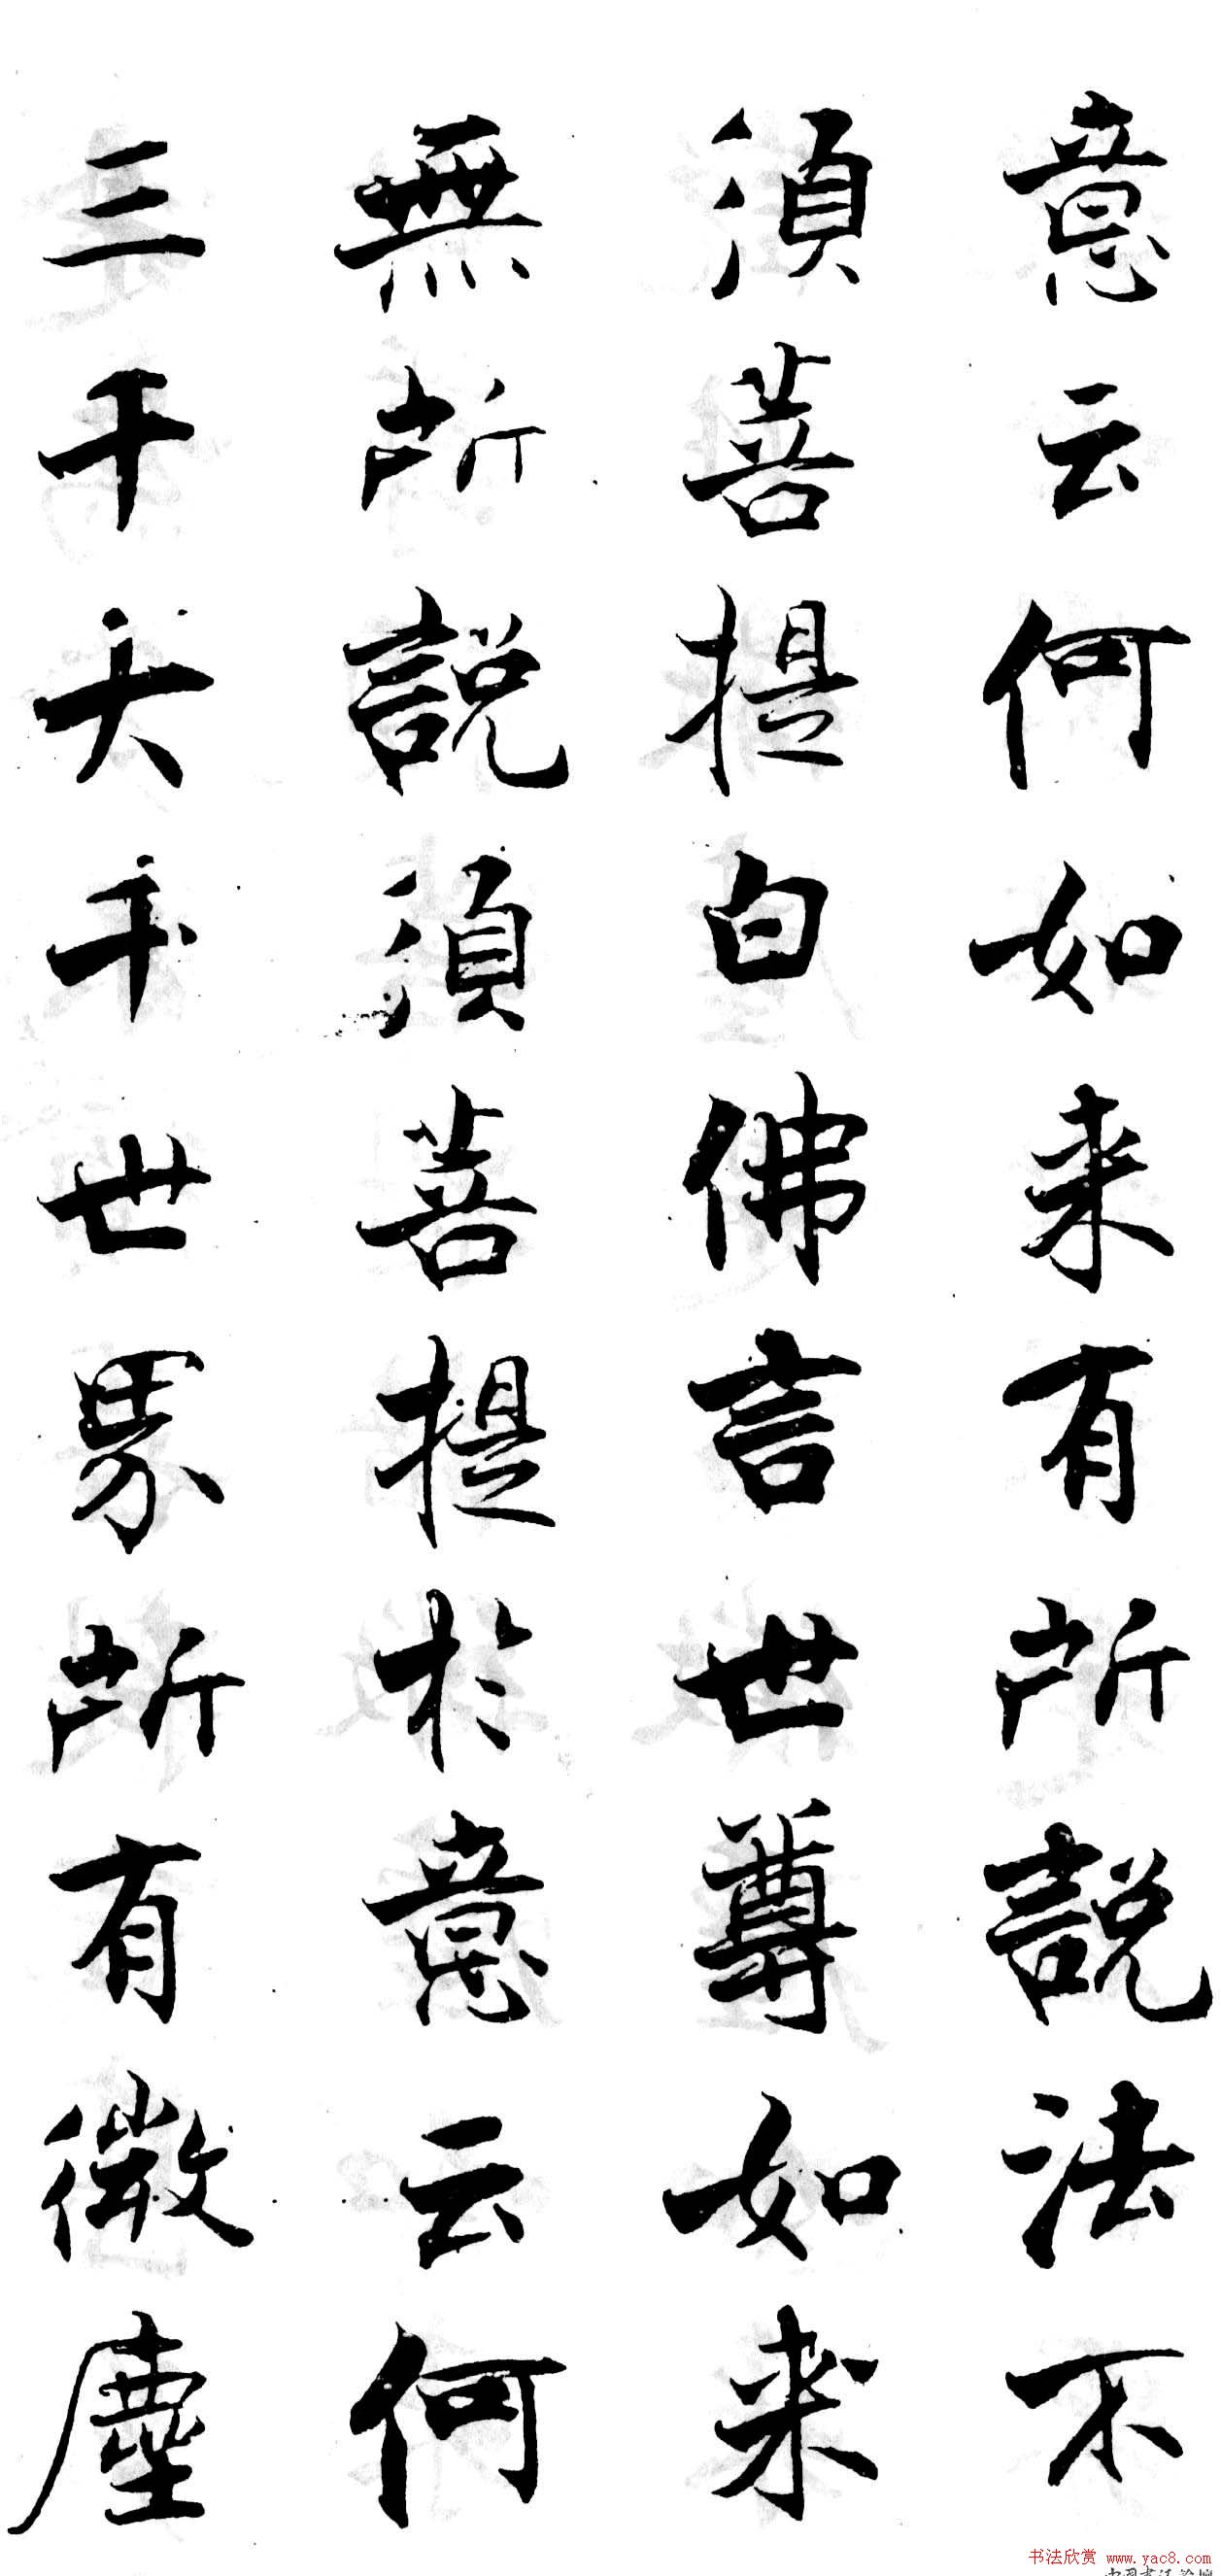 意云何如来有所説法不
須菩提白佛言世尊如来
無所説須菩提於意云何
三千大千世界所有微塵
书法欣赏 www.yac8.com